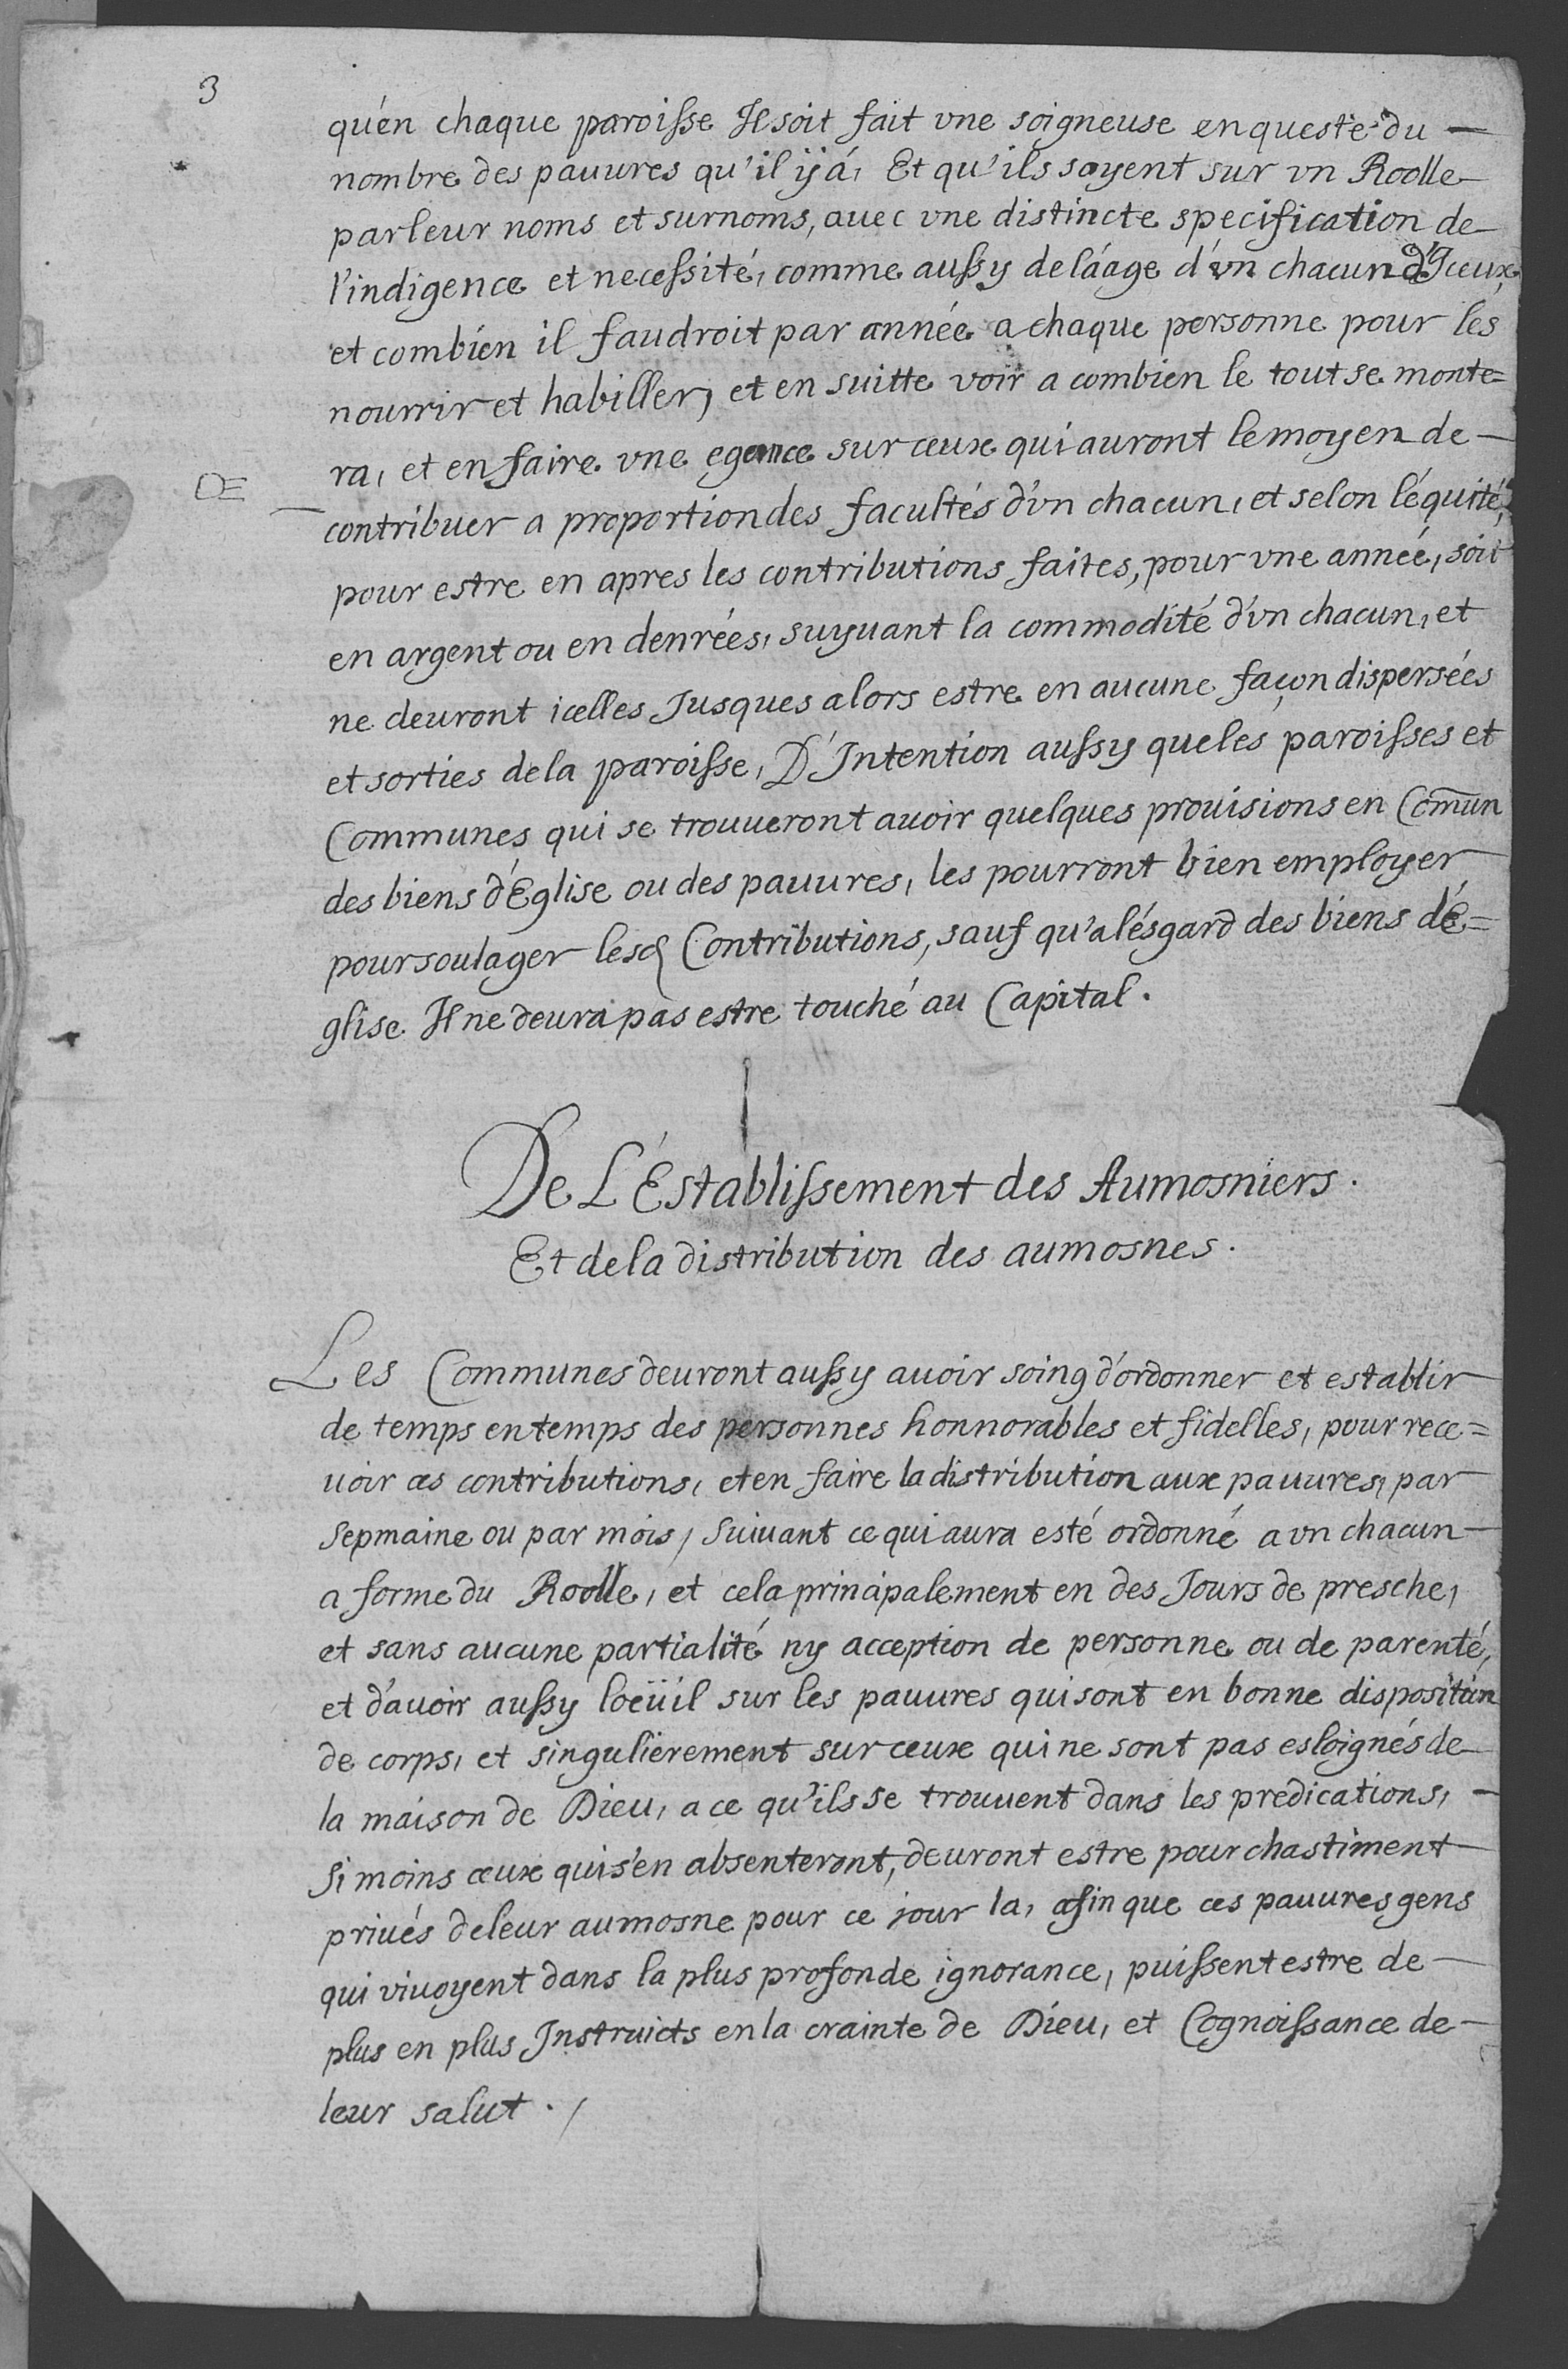 3
qu'en chaque paroisse Il soit fait vne soigneuse enqueste du —
nombre des pauures qu'il ÿ á, Et qu'ils soyent sur vn Roolle
par leur noms et surnoms, auec vne distincte specification de
l'indigence et necessité, comme aussy de láage d'vn chacun d'Iceux,
et combien il faudroit par année a chaque personne pour les
nourrir et habiller, et en suitte voir a combien le tout se monte=
ra, et en faire vne egance sur ceux qui auront le moyen de —
DE
contribuer a proportion des facultés d'vn chacun, et selon l'équité,
pour estre en apres les contributions faites, pour vne année, soit
en argent ou en denrées, suyuant la commodité d'vn chacun, et
ne deuront icelles Jusques alors estre en aucune façon dispersées
et sorties de la paroisse, D'Intention aussy que les paroisses et
Communes qui se trouueront auoir quelques prouisions en Com̄un
des biens d'Eglise ou des pauures, les pourront bien employer
pour soulager lesd Contributions, sauf qu'a lésgard des biens d'é=
glise Il ne deura pas estre touché au Capital.
De L'Establissement des Aumosniers.
Et de la distribution des aumosnes.
Les Communes deuront aussy auoir soing d'ordonner et establir
de temps en temps des personnes honnorables et fidelles, pour rece=
uoir ces contributions, et en faire la distribution aux pauures, par
Sepmaine ou par mois, suiuant ce qui aura esté ordonné a vn chacun —
a forme du Roolle, et cela principalement en des Jours de presche,
et sans aucune partialité ny acception de personne ou de parenté,
et d'auoir aussy loeüil sur les pauures qui sont en bonne disposition
de corps, et singulierement sur ceux qui ne sont pas esloignés de
la maison de Dieu, a ce qu'ils se trouuent dans les predications, —
si moins ceux qui s'en absenteront, deuront estre pour chastiment
priués de leur aumosne pour ce jour la, afin que ces pauures gens
qui viuoyent dans la plus profonde ignorance, puissent estre de —
plus en plus Instruicts en la crainte de Dieu, et Cognoissance de —
leur salut. /